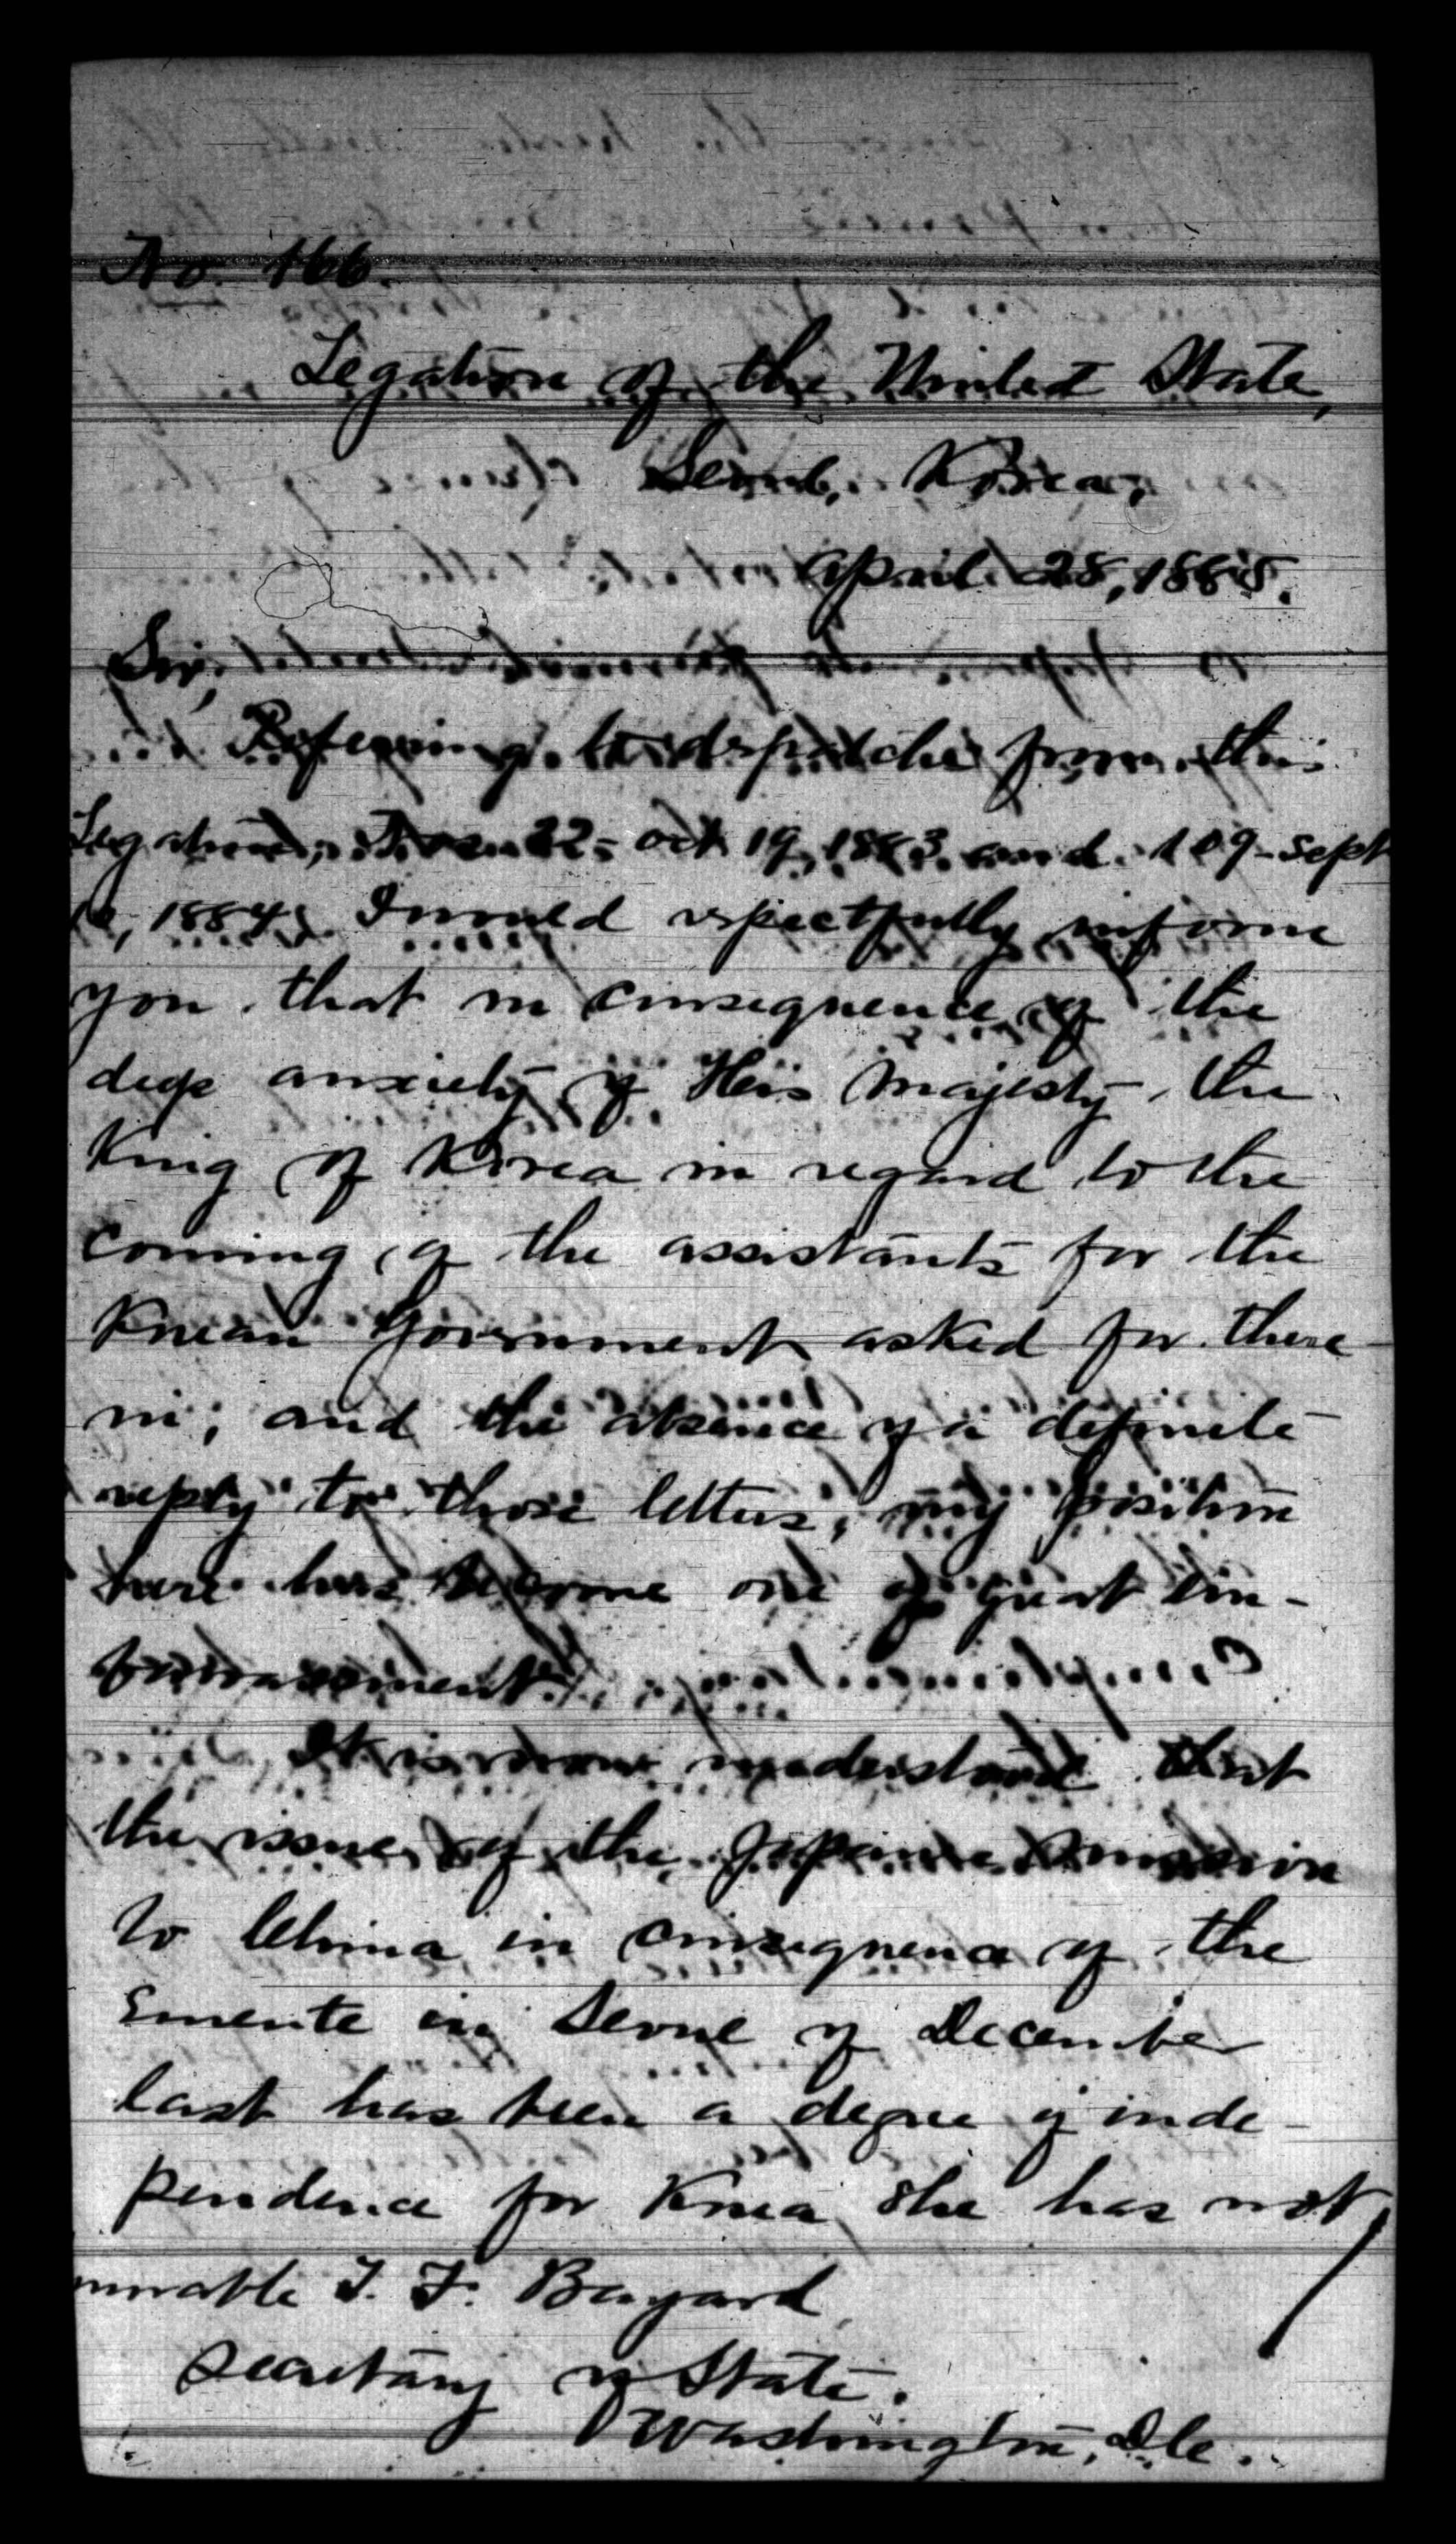 No. 166.
Legation of the United States,
Seoul, Korea,
April 28, 1885.
Sir;
Referring to despatches from this
Legation, Nos. 22- Oct 19, 1883 and 109- Sept
10, 1884, I would respectfully inform
you that in consequence of the
deep anxiety of His Majesty, the
King of Korea in regard to the
coming of the assistants for the
Korean Government asked for there
in; and the absence of a definite
reply to those letters, my position
here has become one of great em-
barrassment.
It is now understood that
the issue of the Japanese mission
to China in consequence of the
Emeute in Seoul of December
last has been a degree of inde-
pendence for Korea she has not
norable T. F. Bayard,
Secretary of State.
Washington, D.C.